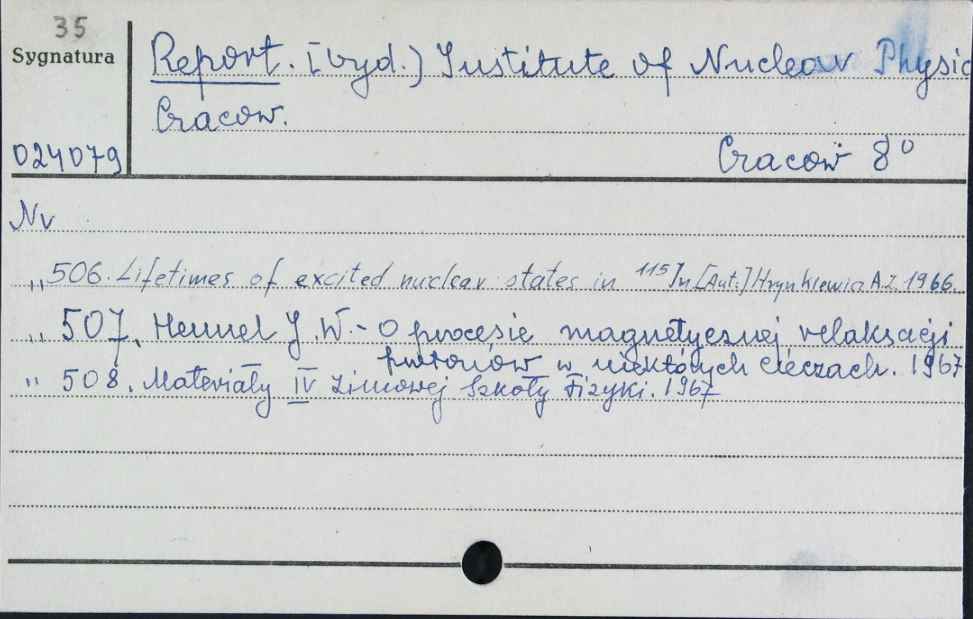 35
Sygnatura
Report. [wyd.] Institute of Nuclear Physic
Cracow.
024079
Cracow 8°
Nr
„ 506. Lifetimes of excited nuclear states in ¹¹⁵In [Aut.] Hrynkiewicz A.Z. 1966.
„ 507. Hennel J. W. - O procesie magnetycznej relaksacji
protonów w niektórych cieczach. 1967
„ 508. Materiały IV Zimowej Szkoły Fizyki. 1967